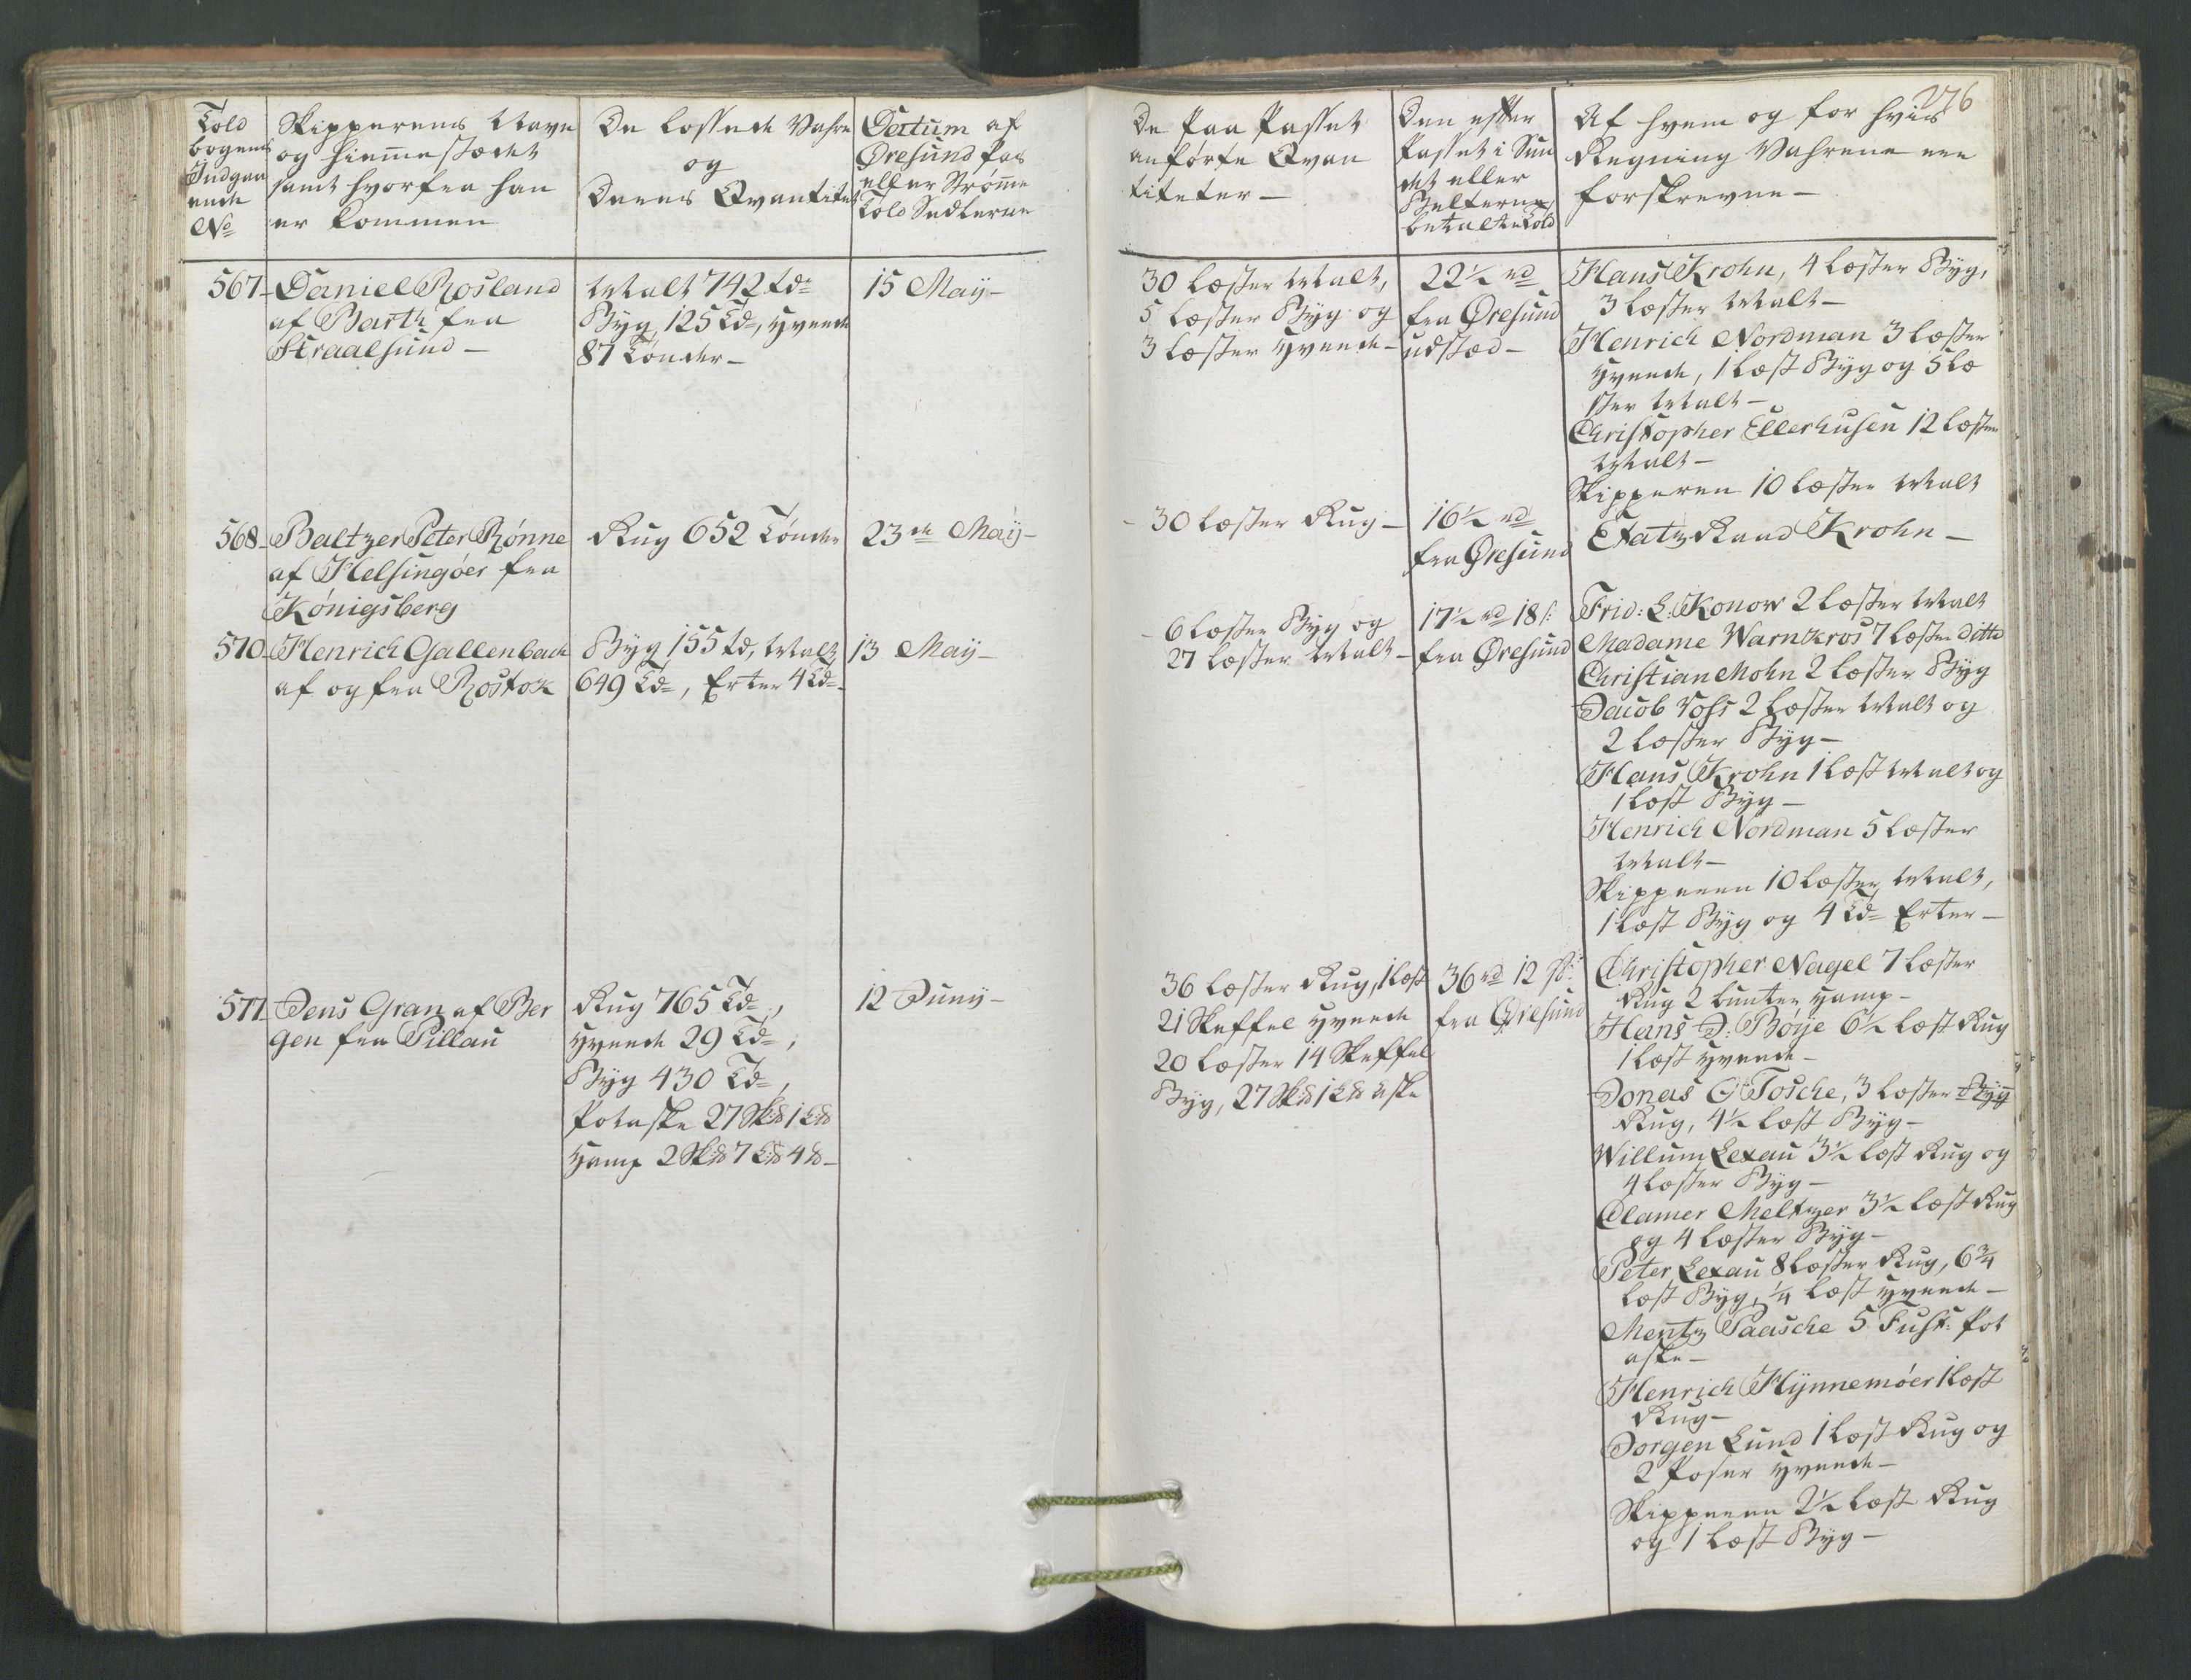 276
Told
bogens
Indgaa
ende
No
Skipperens Navn
og Hiemmestædet
samt hvorfra han
er kommen
De lossede Vahre
og
Deres Qvantitet
Datum af
Øresund Pas
eller Strømme
Told Sedlerne
De paa Passet
anførte Qvan
titeter —
Den efter
Passet i Sun
det eller
Belterne
betalte Told
Af hvem og for hvis
Regning Vahrene ere
forskrevne —
567 Daniel Rosland
af Barth fra
Straalsund —
Malt 742 Td
Byg 125 Td, Hvede
87 Tønder —
15 May —
30 Læster Malt,
5 Læster Byg og
3 Læster Hvede —
22½ rd
fra Øresund
udstæd —
Hans Krohn, 4 Læster Byg,
3 Læster Malt —
Henrich Nordman 3 Læster
Hvede, 1 Læst Byg og 5 Læ
ster Malt —
Christopher Ellerhusen 12 Læster
Malt —
Skipperen 10 Læster Malt
568 Baltzer Peter Rønne
af Helsingøer fra
Königsberg
Rug 652 Tønder
23de May —
30 Læster Rug —
16½ rd
fra Øresund
Etatz Raad Krohn —
570 Henrich Gallenbach
af og fra Rostok
Byg 155 td, Malt
649 Td, Erter 4 Td
13 May —
6 Læster Byg og
27 Læster Malt —
17½ rd 18 s:
fra Øresund
Frid: L: Konow 2 Læster Malt
Madame Warnkros 7 Læster ditto
Christian Mohn 2 Læster Byg
Jacob Voss 2 Læster Malt og
2 Læster Byg —
Hans Krohn 1 Læst Malt og
1 Læst Byg —
Henrich Nordman 5 Læster
Malt —
Skipperen 10 Læster Malt,
1 Læst Byg og 4 Td Erter —
577 Jens Gran af Ber
gen fra Pillau
Rug 765 Td,
Hvede 29 Td,
Byg 430 Td,
Potaske 27 Sk℔ 1 L℔
Hamp 2 Sk℔ 7 L℔ 4 ℔ —
12 Juny —
36 Læster Rug, 1 Læst
21 Skeffel Hvede
20 Læster 14 Skeffel
Byg, 27 Sk℔ 1 L℔ aske
36 rd 12 s:
fra Øresund
Christopher Nagel 7 Læster
Rug 2 bunter Hamp —
Hans D: Bøÿe 6½ Læst Rug
1 Læst Hvede —
Jonas C: Tosche, 3 Læster Byg
Rug, 4½ Læst Byg —
Willum Lexau 3½ Læst Rug og
4 Læster Byg —
Clamer Meltzer 3½ Læst Rug
og 4 Læster Byg —
Peter Lexau 8 Læster Rug, 6¾
Læst Byg, ¼ Læst Hvede —
Mentz Paasche 5 Fust: Pot
aske —
Henrich Hÿnnemöer 1 Læst
Rug —
Jorgen Lund 1 Læst Rug og
2 Poser Hvede —
Skipperen 2½ Læst Rug
og 1 Læst Byg —